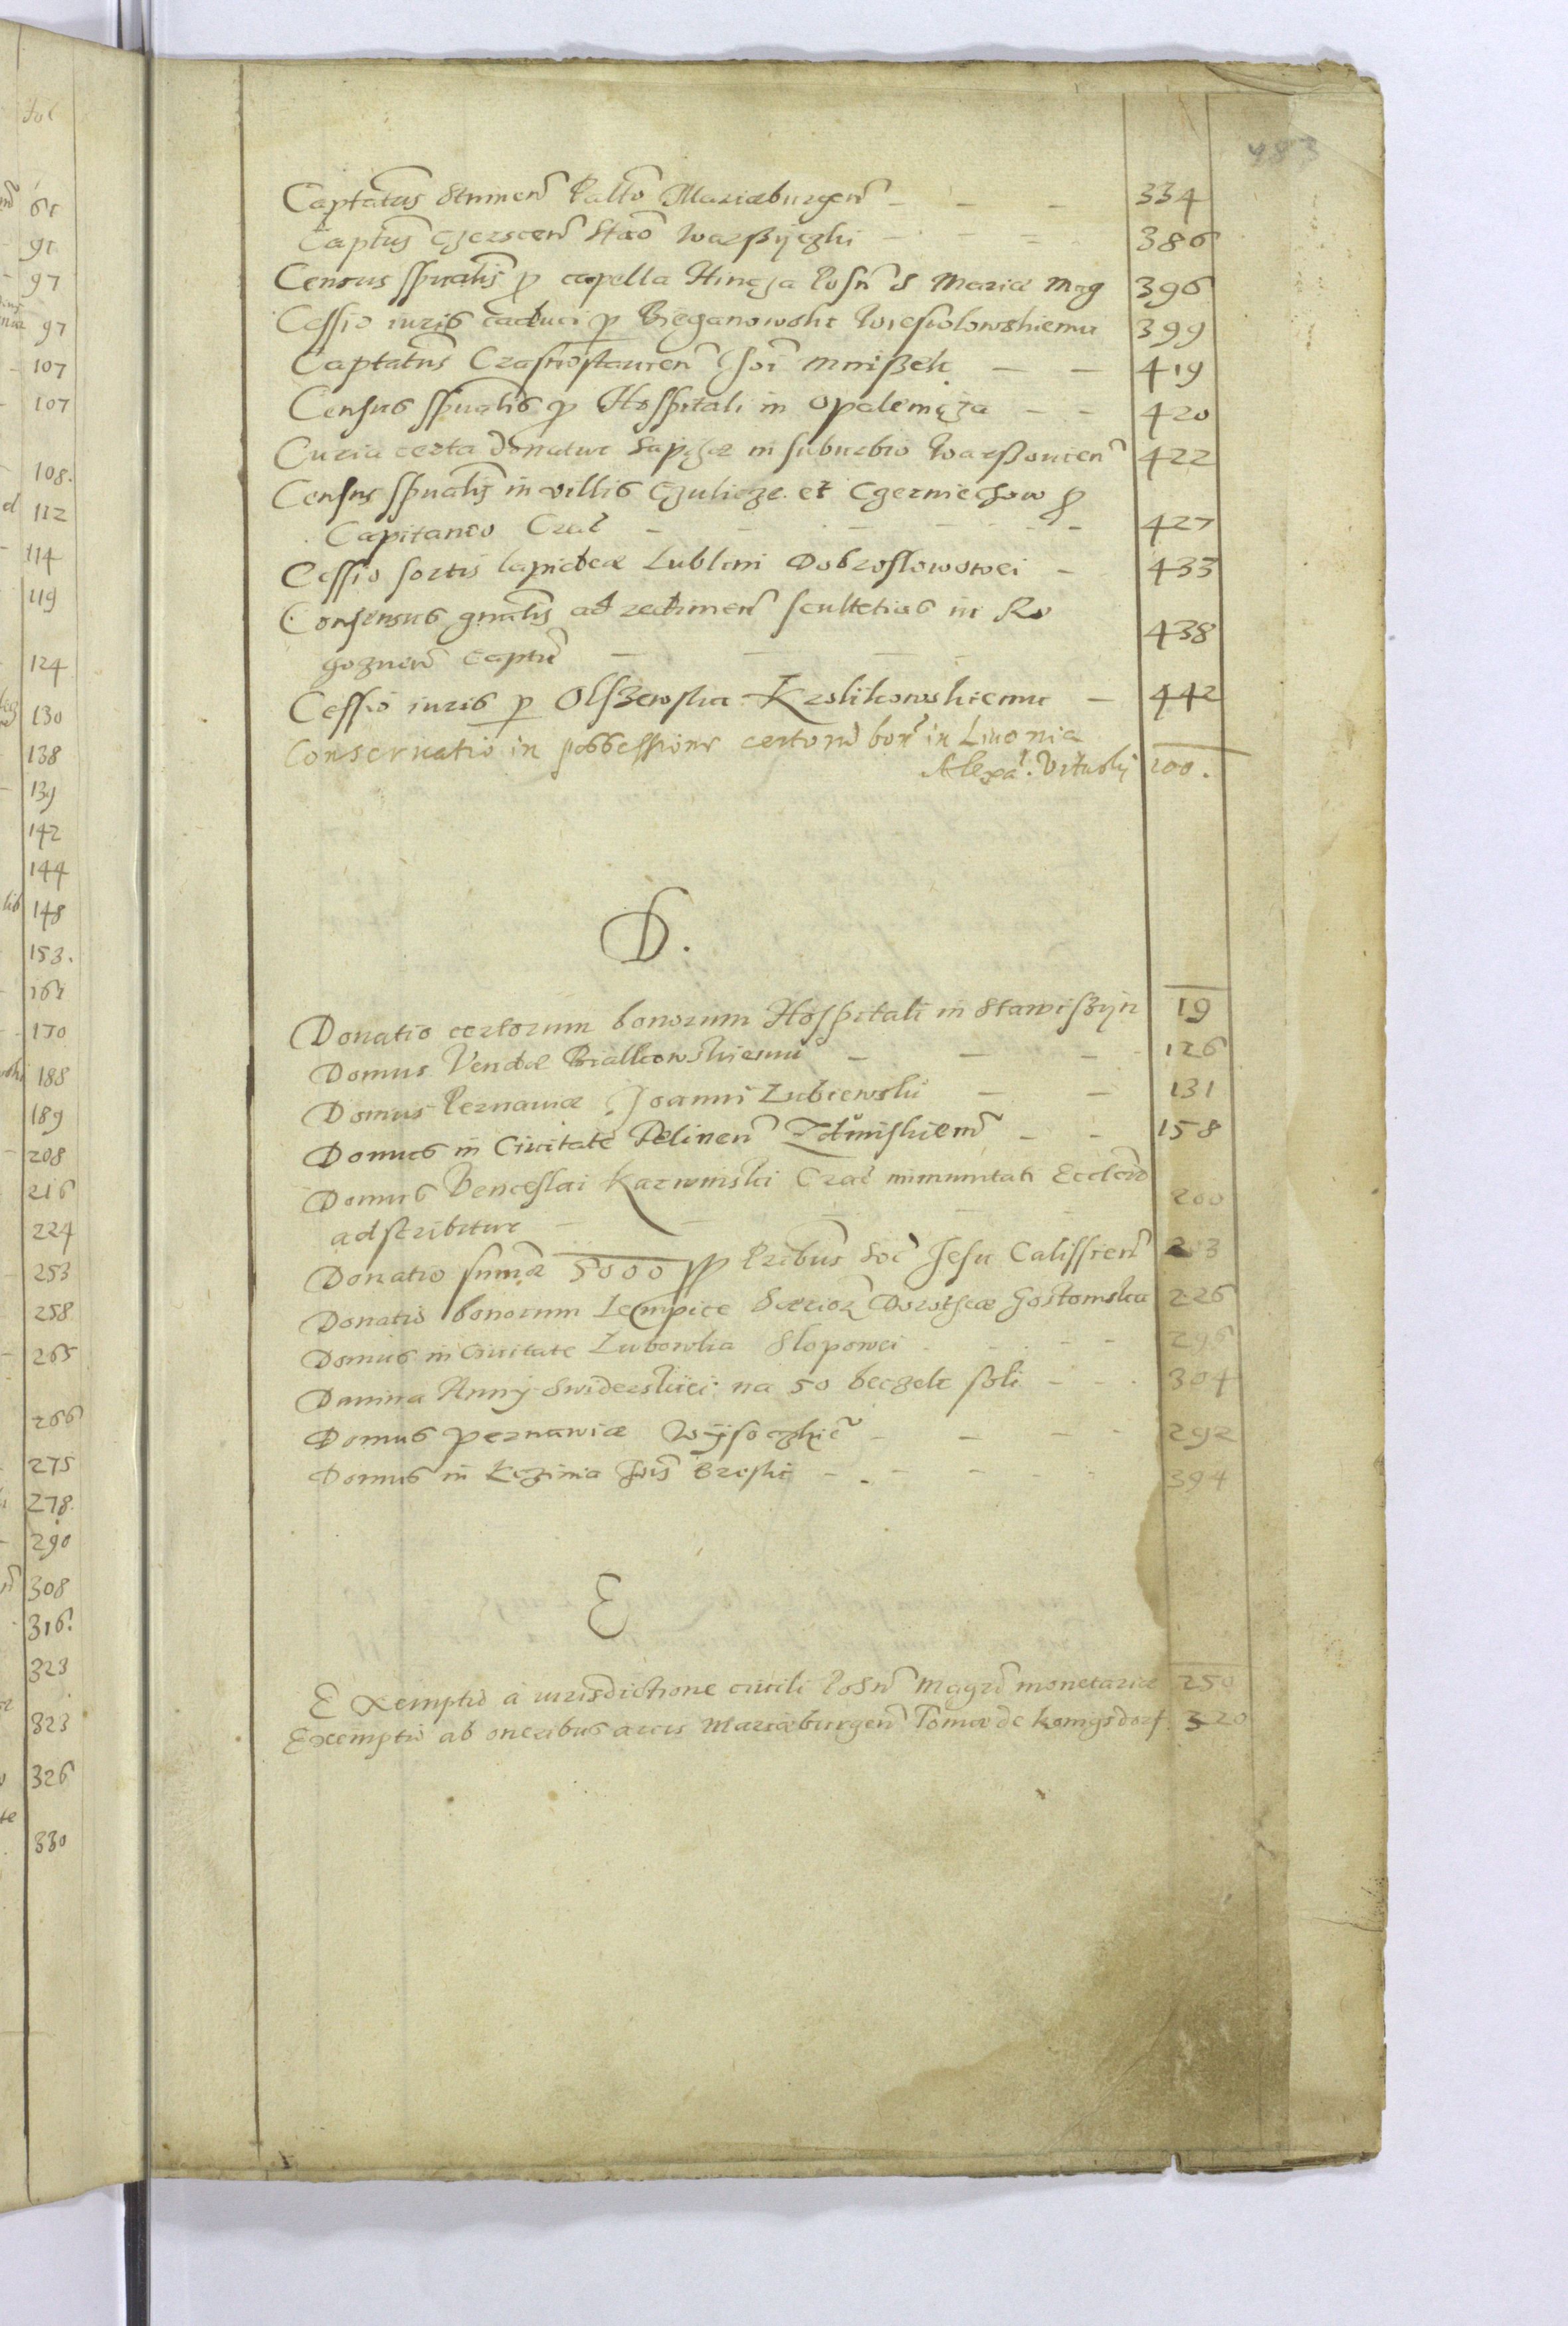 483
Captatus Stumen Pallo Mariæburgen - - - 334
Captus Czerscen Stao Warßyczki - - - 386
Census spualis p capella Hincza Posn S Mariæ Mag 396
Cessio iuris caduci p Bieganowski Wiesiolowskiemu 399
Captatus Crasnostauien Joi Mnißek - - 419
Census spualis p Hospitali in Opalenicza - - 420
Curia certa donatur Sapihæ in suburbio Warßouien 422
Census spualis in villis Czulicze et Czerniechow p
Capitaneo Crac - - - - - 427
Cessio sortis lapideæ Lublini Dobroslowowei - 433
Consensus gnalis ad redimen scultetias in Ro
goznen captu - - - 438
Cessio iuris p Olszewska Krolikowskiemu - 442
Conservatio in possessione certoru bor in Livonia
Alexa: Vituski 200.
D.
Donatio certorum bonorum Hospitali in Stawißyn 19
Domus Vendæ Bialkowskiemu - - - 126
Domus Pernaviæ Joanni Lubiewski - - 131
Domus in Civitate Felinen Zdunskiem - - 158
Domus Venceslai Karwinski Crac immunitati Eccl
adscribitur - - - - 200
Donatio sumæ 5000 p Pribus Soc Jesu Calissien 213
Donatio bonorum Lempice Dorotheæ Gostomska 226
Domus in Civitate Lubowla Slopowei - - - 296
Danina Anny Swiderskiei na 50 beczek soli - - 304
Domus Pernawiæ Wysoczkie - - - - 292
Domus in Kczinia Jois Breski - - - - 394
E
Exemptio a iurisdictione civili Posn Magri monetariæ 250
Exemptio ab oneribus arcis Mariæburgen Tomæ de Konigsdorf 320
fol
61
91
97
97
107
107
108.
112
114
119
124
130
138
139
142
144
148
153.
164
170
188
189
208
216
224
253
258
265
266
275
278.
290
308
316.
323
323
326
330